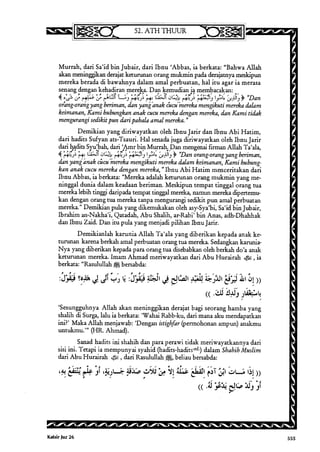 52. ATH THUUR
Murrah, dari Sa'id bin Jubair, dari Ibnu 'Abbas, ia berkata: "Bahwa Allah
akan meninggikan derajat keturunan orang mukmin pada derajatnya meskipun
mereka berada di bawahnya dalam amal perbuatan, hal itu agar ia merasa
senang dengan kehadiran mereka. Dan kemudian ia membacakan:
"Dan
orang-orang yang beriman, dan yang anak cucu mereka mengikuti mereka dalam
keimanan, Kami hubungkan anak cucu mereka dengan mereka, dan Kami tidak
mengurangi sedikit pun dari pahala amal mereka."
Demikian yang diriwayatkan oleh Ibnu Jarir dan Ibnu Abi Hatim,
dari hadits Sufyan ats-Tsauri. Hal senada juga diriwayatkan oleh Ibnu Jarir
dari hadits Syu'bah, dari 'Amr bin Murrah. Dan mengenai firman Allah Ta'ala,
"Dan orang-orang yang beriman,
dan yang anak cucu mereka mengikuti mereka dalam keimanan, Kami hubung-
kan anak cucu mereka dengan mereka," Ibnu Abi Hatim menceritakan dari
Ibnu Abbas, ia berkata: "Mereka adalah keturunan orang mukmin yang me-
ninggal dunia dalam keadaan beriman. Meskipun tempat tinggal orang tua
mereka lebih tinggi daripada tempat tinggal mereka, namun mereka dipertemu-
kan dengan orang tua mereka tanpa mengurangi sedikit pun amal perbuatan
mereka." Demikian pula yang dikemukakan oleh asy-Sya'bi, Sa'id bin Jubair,
Ibrahim an-Nakha'i, Qatadah, Abu Shalih, ar-Rabi' bin Anas, adh-Dhahhak
dan Ibnu Zaid. Dan itu pula yang menjadi pilihan Ibnu Jarir.
Demikianlah karunia Allah Ta'ala yang diberikan kepada anak ke-
turunan karena berkah amal perbuatan orang tua mereka. Sedangkan karunia-
Nya yang diberikan kepada para orang tua disebabkan oleh berkah do'a anak
keturunan mereka. Imam Ahmad meriwayatkan dari Abu Hurairah, ia
berkata: "Rasulullah bersabda:
(( إِنَّ اللهَ لَيَرْفَعُ الدَّرَجَةَ لِلْعَبْدِ الصَّالِحِ فِي الْجَنَّةِ فَيَقُولُ: يَا رَبِّ أَنَّى لِي هَذِهِ؟ فَيَقُولُ:
بِاسْتِغْفَارِ وَلَدِكَ لَكَ. ))
'Sesungguhnya Allah akan meninggikan derajat bagi seorang hamba yang
shalih di Surga, lalu ia berkata: 'Wahai Rabb-ku, dari mana aku mendapatkan
ini?' Maka Allah menjawab: 'Dengan istighfar (permohonan ampun) anakmu
untukmu.'" (HR. Ahmad).
Sanad hadits ini shahih dan para perawi tidak meriwayatkannya dari
sisi ini. Tetapi ia mempunyai syahid (hadits-hadits) dalam Shahih Muslim
dari Abu Hurairah, dari Rasulullah, beliau bersabda:
(( إِذَا مَاتَ ابْنُ آدَمَ انْقَطَعَ عَمَلُهُ إِلَّا مِنْ ثَلَاثٍ: صَدَقَةٍ جَارِيَةٍ، أَوْ عِلْمٍ يُنْتَفَعُ بِهِ،
أَوْ وَلَدٍ صَالِحٍ يَدْعُو لَهُ. ))
Katsir Juz 26
555